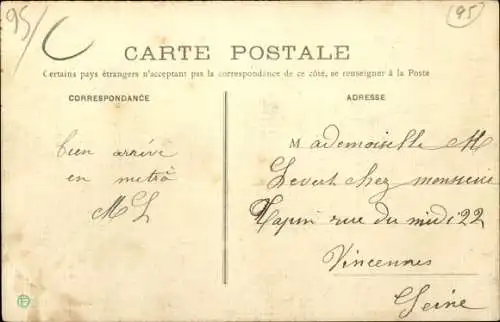 95/
95
CARTE POSTALE
Certains pays étrangers n'acceptant pas la correspondance de ce côté, se renseigner à la Poste
CORRESPONDANCE
bien arrivé
en metro
ML
ADRESSE
Mademoiselle M
chez monsieur
rue du midi 22
Vincennes
Seine